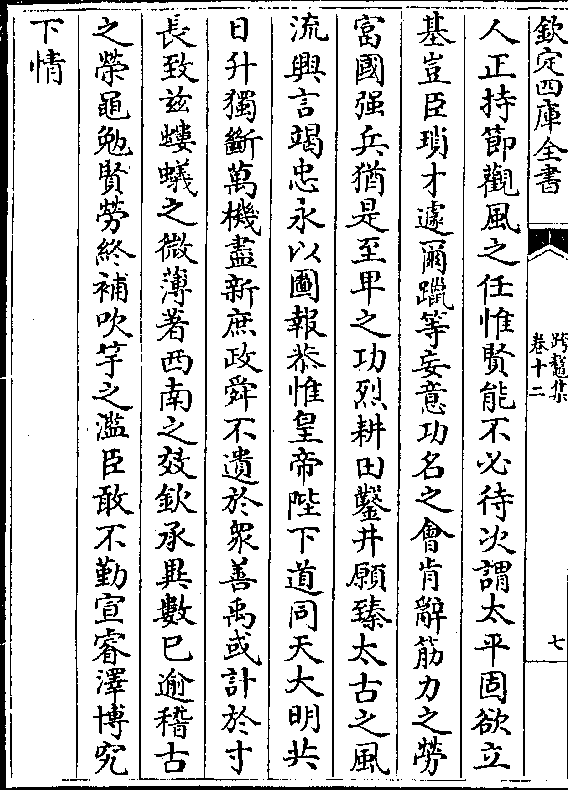 欽定四庫全書
跨鼇集
卷十二
七
人正持節觀風之任惟賢能不必待次謂太平固欲立
基豈臣瑣才遽爾躐等妄意功名之會肯辭筋力之勞
富國强兵猶是至卑之功烈耕田鑿井願臻太古之風
流興言竭忠永以圖報恭惟皇帝陛下道同天大明共
日升獨斷萬機盡新庶政舜不遺於衆善禹或計於寸
長致兹螻蟻之微薄著西南之效欽承異數已逾稽古
之榮黽勉賢勞終補吹竽之濫臣敢不勤宣睿澤博究
下情